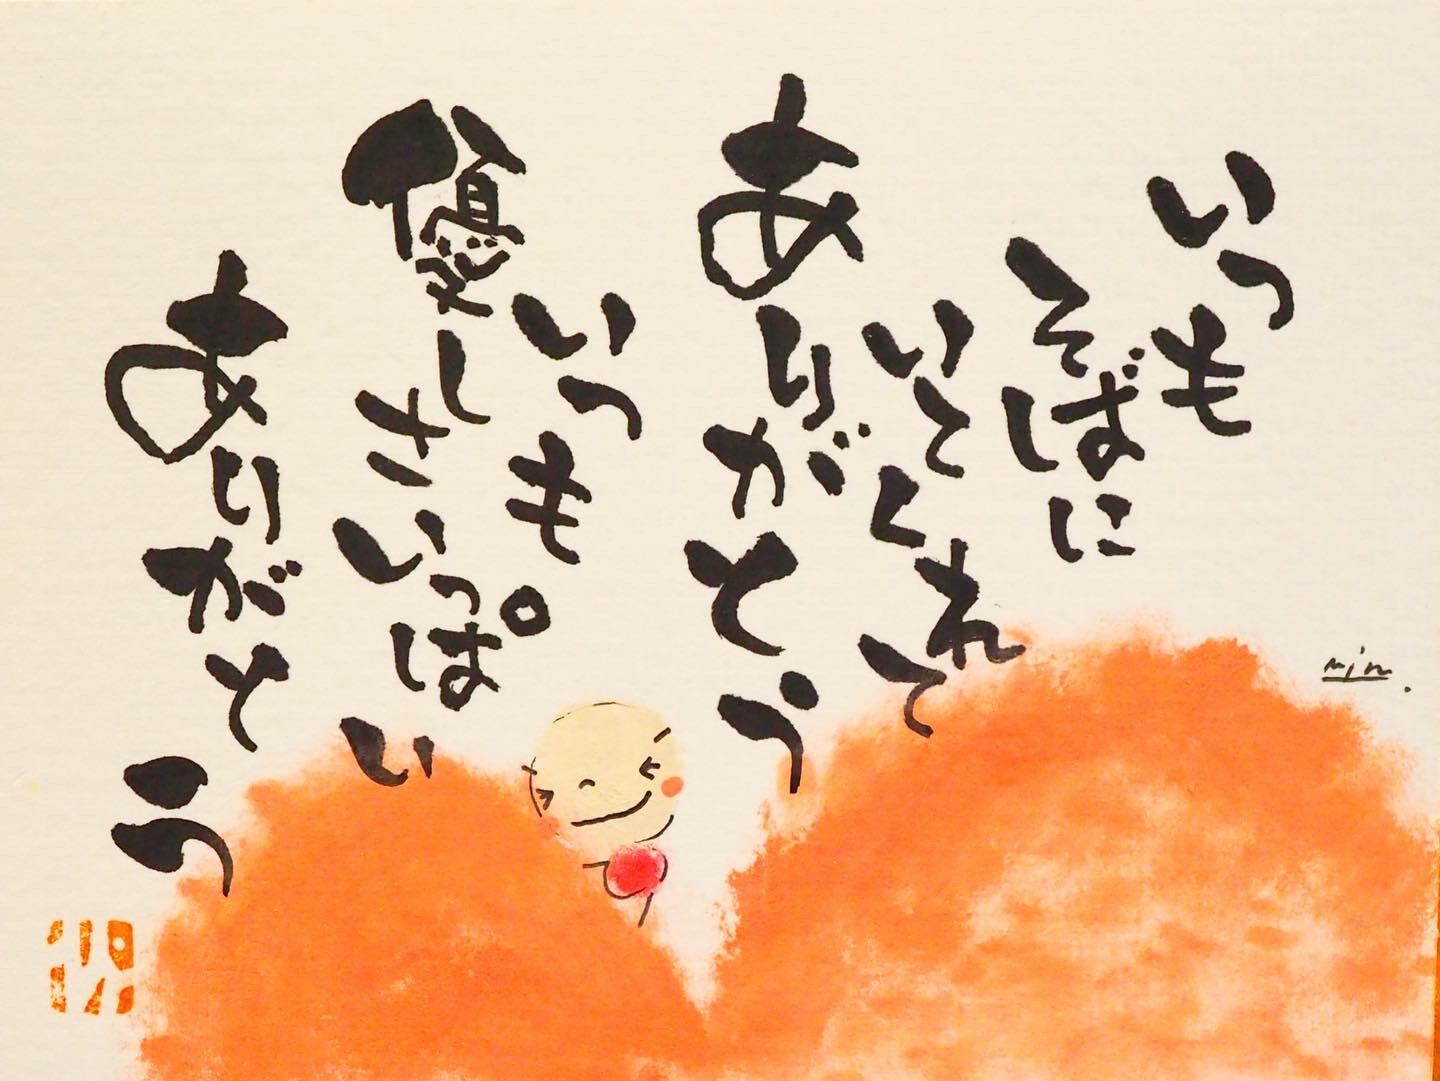 いつも
そばに
いてくれて
ありがとう
いつも
優しさいっぱい
ありがとう
min.